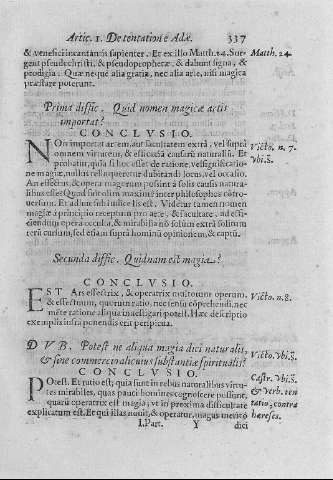 Artic. 1. De tentatione Adæ. 337
& venefici incantantis sapienter. Et ex illo Matth. 24. Sur-
gent pseudochristi, & pseudoprophetæ, & dabunt signa, &
prodigia. Quæ neque alia gratia, nec alia arte, nisi magica
præstare poterunt.
Matth. 24.
Prima diffic. Quid nomen magicæ artis
importat?
CONCLVSIO.
NOn importat artem, aut facultatem extra, vel supra
omnem virtutem, & efficaciã causarũ naturaliũ. Et
probatur, quia si hoc esset de ratione, vel significatio-
ne magiæ, nullus relinqueretur dubitandi locus, vel occasio.
An effectus, & opera magorum possint à solis causis natura-
libus esse? Quod subest maxime inter philosophos cõtro-
uersum. Et adhuc sub iudice lis est. Videtur tamen nomen
magiæ à principio receptum pro arte, & facultate, ad effi-
ciendum opera occulta, & mirabilia nõ solum extra solitum
rerū cursum, sed etiam supra hominū opinionem, & captũ.
Victo. n. 7.
Vbi. S.
Secunda diffic. Quidnam est magia?
CONCLVSIO.
EST Ars effectrix, & operatrix multorum operum,
& effectuum, quorum ratio, nec sensu cõprehendi, nec
mẽte ratione aliqua inuestigari potest. Hæc descriptio
exemplis infra ponendis erit perspicua.
Victo. n. 8.
DVB. Potest ne aliqua magia dici naturalis,
& sine commercio alicuius substantiæ spiritualis?
CONCLVSIO.
POtest. Et ratio est; quia sunt in rebus naturalibus virtu-
tes mirabiles, quas pauci homines cognoscere possunt,
quarū operatrix est magia; vt in proxima difficultate
explicatum est. Et qui illas nouit, & operatur, magus meritò
Victo. Vbi. S.
Castr. Vbi. S.
& verb. ten
tatio, contra
hæreses.
I. Part. Y dici